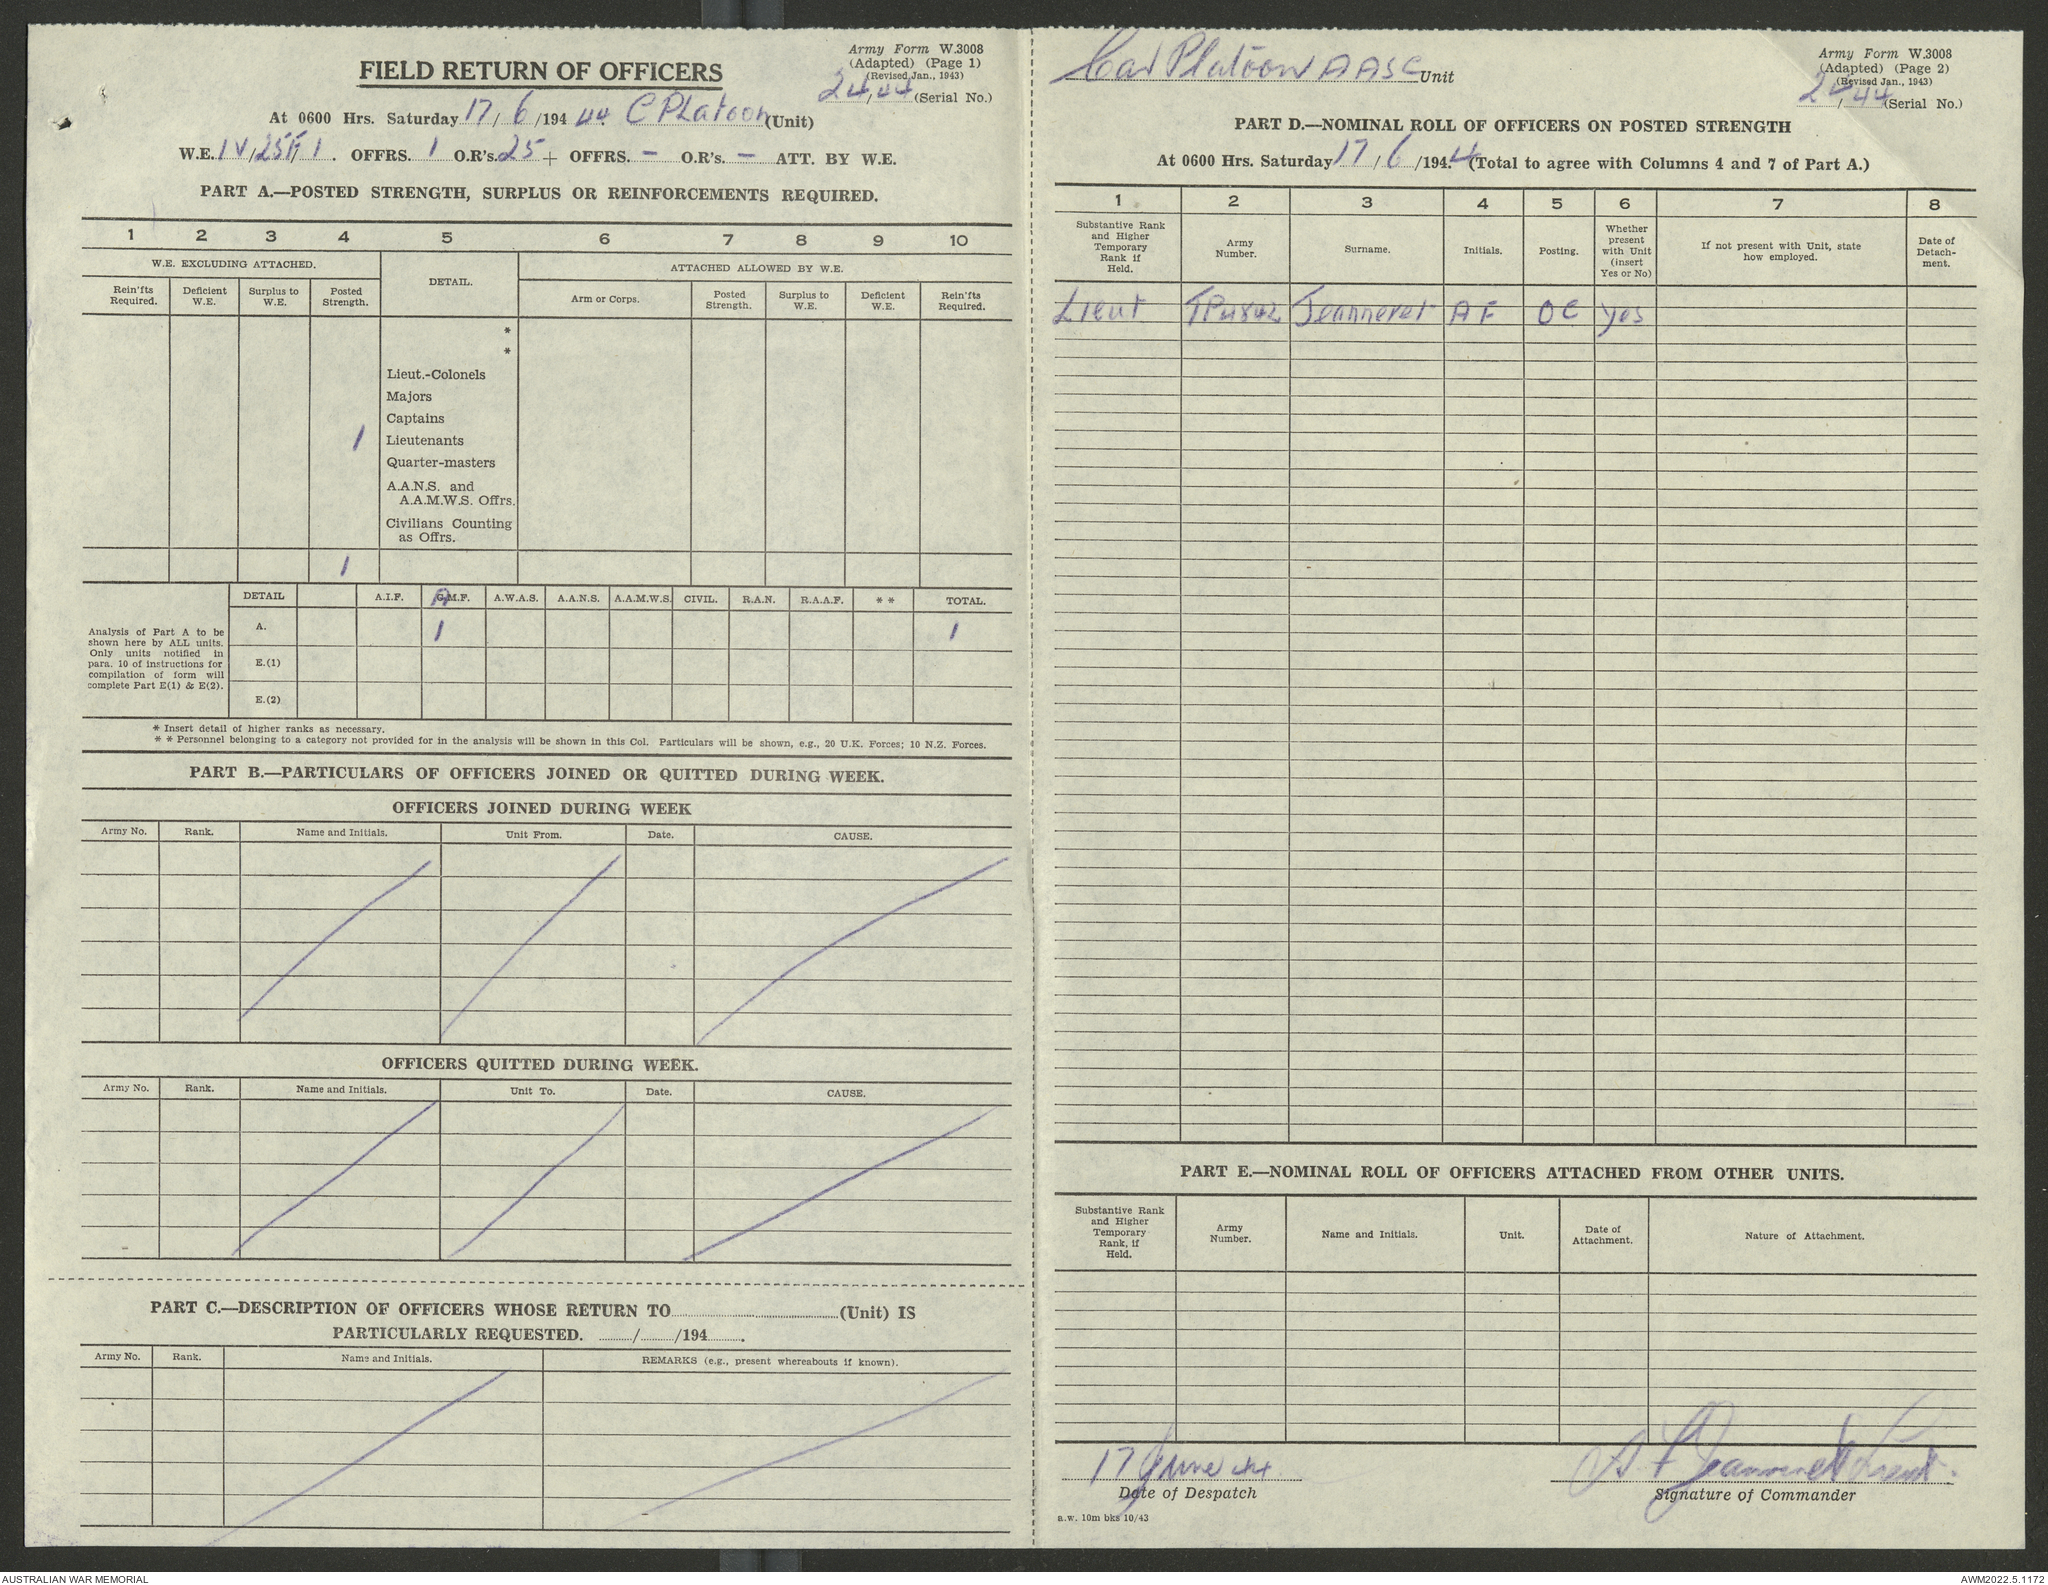 Army Form W.3008
(Adapted) (Page 1)
(Revised Jan., 1943)
24/44 (Serial No.)
FIELD RETURN OF OFFICERS
At 0600 Hrs. Saturday 17/6/194 44. C PLatoon (Unit)
W.E. IV/25F/1. OFFRS. 1 O.R's. 25 + OFFRS. – O.R's. – ATT. BY W.E.
PART A.—POSTED STRENGTH, SURPLUS OR REINFORCEMENTS REQUIRED.
1 2 3 4 5 6 7 8 9 10
W.E. EXCLUDING ATTACHED. DETAIL. ATTACHED ALLOWED BY W.E.
Rein'fts Required. Deficient W.E. Surplus to W.E. Posted Strength. Arm or Corps. Posted Strength. Surplus to W.E. Deficient W.E. Rein'fts Required.
*
*
Lieut.-Colonels
Majors
Captains
1 Lieutenants
Quarter-masters
A.A.N.S. and
A.A.M.W.S. Offrs.
Civilians Counting
as Offrs.
1
DETAIL A.I.F. A.M.F. A.W.A.S. A.A.N.S. A.A.M.W.S. CIVIL. R.A.N. R.A.A.F. * * TOTAL.
A. 1 1
E.(1)
E.(2)
Analysis of Part A to be
shown here by ALL units.
Only units notified in
para. 10 of instructions for
compilation of form will
complete Part E(1) & E(2).
* Insert detail of higher ranks as necessary.
* * Personnel belonging to a category not provided for in the analysis will be shown in this Col. Particulars will be shown, e.g., 20 U.K. Forces; 10 N.Z. Forces.
PART B.—PARTICULARS OF OFFICERS JOINED OR QUITTED DURING WEEK.
OFFICERS JOINED DURING WEEK
Army No. Rank. Name and Initials. Unit From. Date. CAUSE.
OFFICERS QUITTED DURING WEEK.
Army No. Rank. Name and Initials. Unit To. Date. CAUSE.
PART C.—DESCRIPTION OF OFFICERS WHOSE RETURN TO (Unit) IS
PARTICULARLY REQUESTED. / /194 .
Army No. Rank. Name and Initials. REMARKS (e.g., present whereabouts if known).
Car Platoon AASC Unit
Army Form W.3008
(Adapted) (Page 2)
(Revised Jan., 1943)
24/44 (Serial No.)
PART D.—NOMINAL ROLL OF OFFICERS ON POSTED STRENGTH
At 0600 Hrs. Saturday 17/6/194.4 (Total to agree with Columns 4 and 7 of Part A.)
1 2 3 4 5 6 7 8
Substantive Rank and Higher Temporary Rank if Held. Army Number. Surname. Initials. Posting. Whether present with Unit (insert Yes or No) If not present with Unit, state how employed. Date of Detach-ment.
Lieut TP4842 Jeanneret AF OC yes
PART E.—NOMINAL ROLL OF OFFICERS ATTACHED FROM OTHER UNITS.
Substantive Rank and Higher Temporary Rank, if Held. Army Number. Name and Initials. Unit. Date of Attachment. Nature of Attachment.
17 June 44
Date of Despatch
A F Jeanneret Lieut.
Signature of Commander
a.w. 10m bks 10/43
AUSTRALIAN WAR MEMORIAL
AWM2022.5.1172